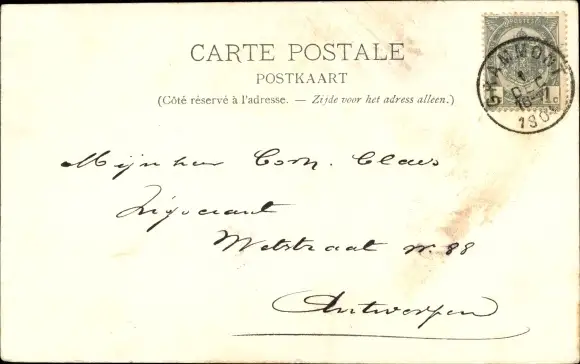 CARTE POSTALE
POSTKAART
(Côté réservé à l'adresse. — Zijde voor het adress alleen.)
GRAMMONT
1
DEC
1 c
Mijnheer Corn. Claes
Négociant
Wetstraat nr. 88
Antwerpen